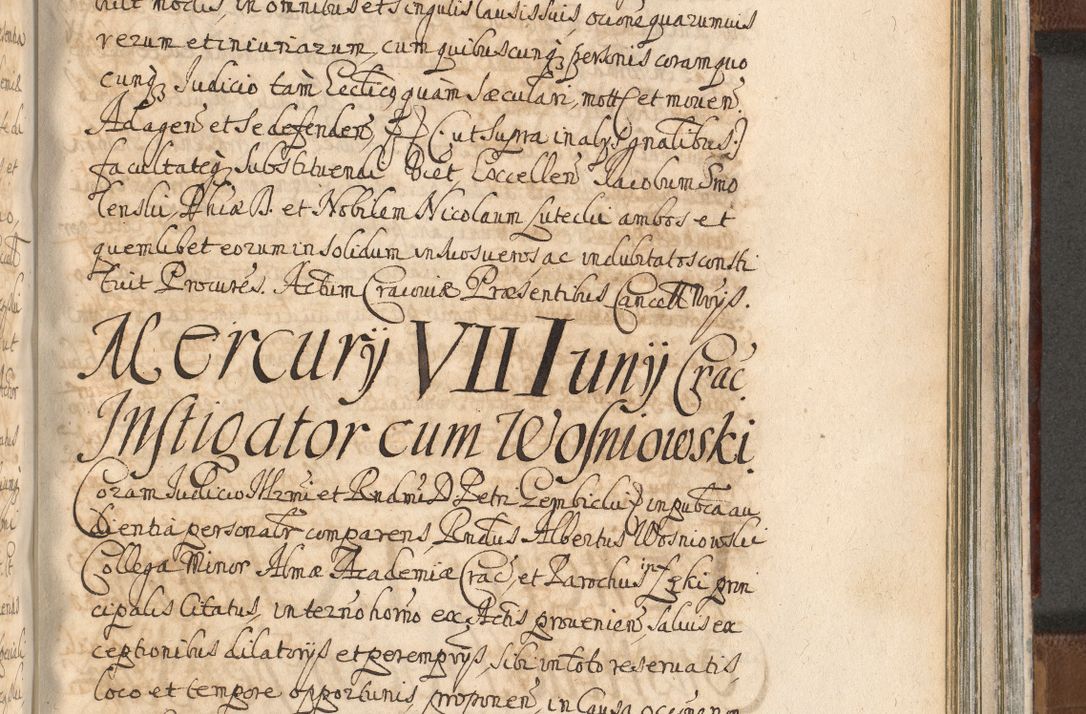 modis, in omnibus et singulis Causis suis, ocione quarumvis
rerum et iniuriarum, cum quibuscunq3 personis coram quo
cunq3 Judicio tàm Ecctico, quàm sæculari, mott et mouen.
Ad agen et se defenden, (ut supra in alijs gnalibus)
facultateq3 substituendi Gict Excellen Jacobum Smo
lenski, Phiæ D. et Nobilem Nicolaum Luteclii ambos et
quemlibet eorum in solidum in suos ueros, ac indubitatos consti
tuit Procures. Actum Cracouiæ Præsentibus Cancell Nrijs.
Mercurij VII Iunij Crac.
Instigator cum Wosniowski.
Coram Judicio Illrmi et Rndmi D. Petri Gembiclii in pubca au
dientia personalr comparens, Rndus Albertus Wosniowski
Collega Minor Almæ Academiæ Crac, et Parochus in prin
cipalis Citatus, in terno horno ex Actis prouenien, saluis ex
ceptionibus dilatorijs et perempijs, sibi in toto reseruatis,
loco et tempore opportunis, proponen, in Causa